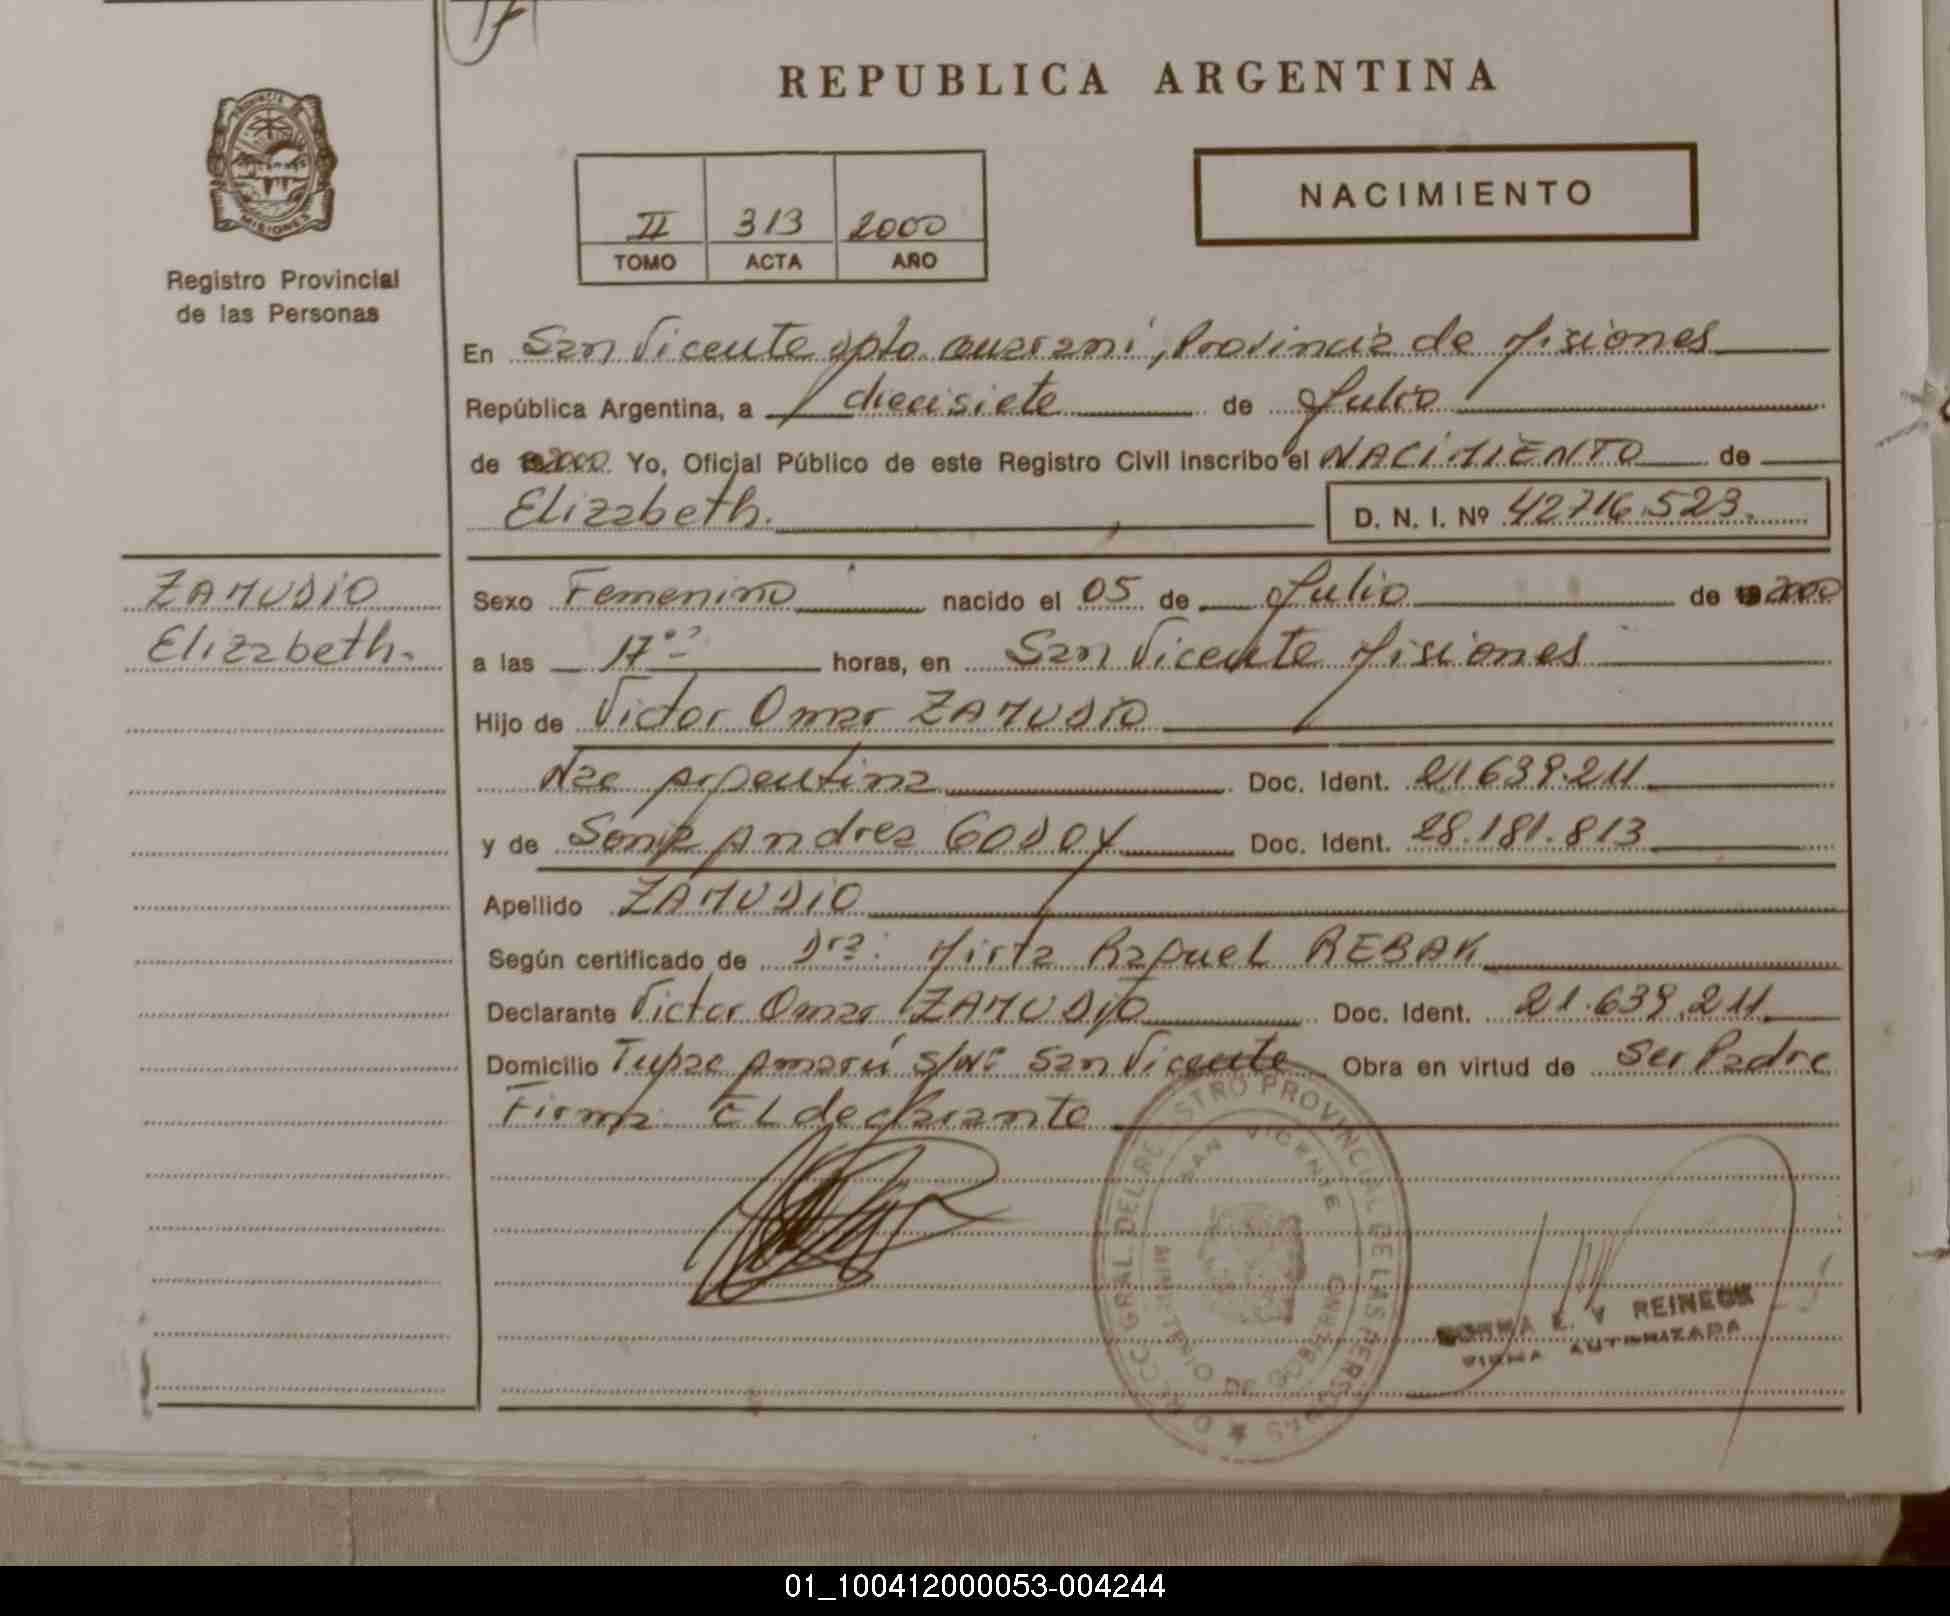 REPUBLICA ARGENTINA
PROVINCIA
MISIONES
Registro Provincial
de las Personas
NACIMIENTO
II 313 2000
TOMO ACTA AÑO
En San Vicente dpto Guarani, Provincia de Misiones
República Argentina, a diecisiete de Julio
de 2000 Yo, Oficial Público de este Registro Civil inscribo el NACIMIENTO de
Elizabeth. D. N. I. Nº 42716.523.
ZAMUDIO
Elizabeth.
Sexo Femenino nacido el 05 de Julio de 2000
a las 17 horas, en San Vicente Misiones
Hijo de Victor Omar ZAMUDIO
Nac Argentina Doc. Ident. 21.639.211
y de Sonia Andrea GODOY Doc. Ident. 28.181.813
Apellido ZAMUDIO
Según certificado de Dra: Mirta Raquel REBAK
Declarante Victor Omar ZAMUDIO Doc. Ident. 21.639.211
Domicilio Tupac Amarú S/Nº San Vicente Obra en virtud de Ser Padre
Firma: El declarante
GRAL DEL REGISTRO PROVINCIAL DE LAS PERSONAS
SAN VICENTE
MINISTERIO DE GOBIERNO
NORMA E. V REINECK
FIRMA AUTORIZADA
01_100412000053-004244